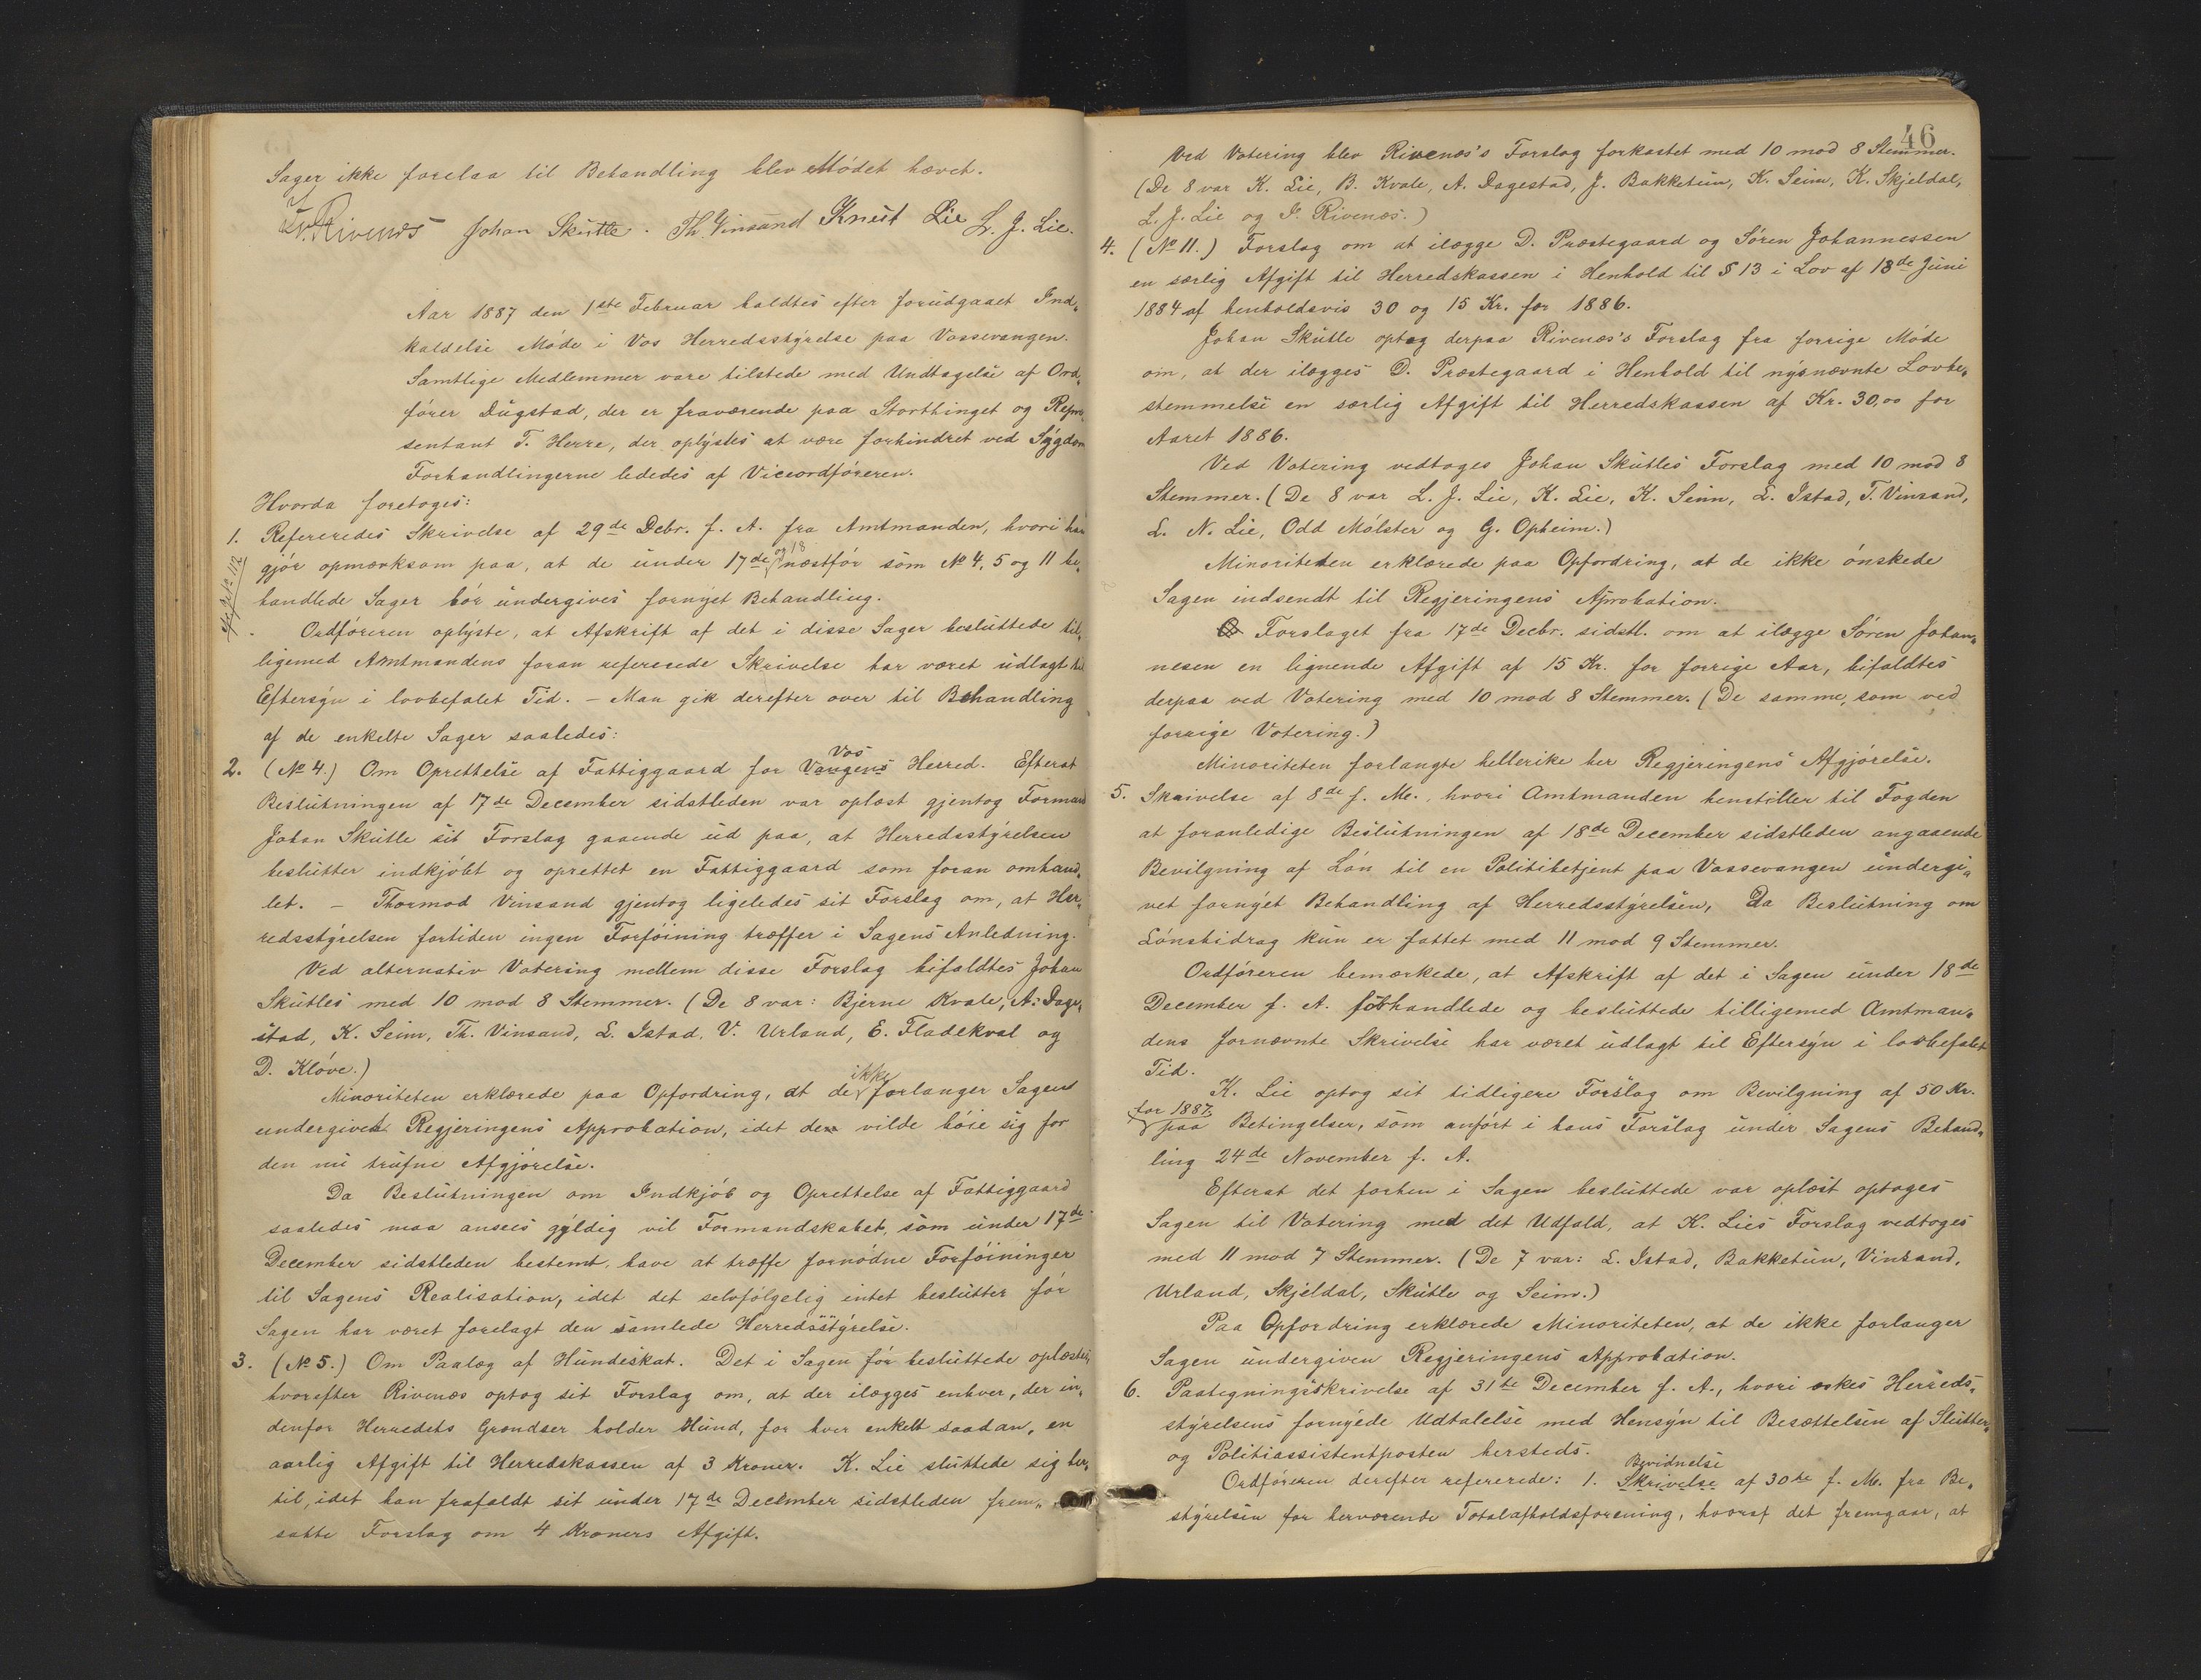 Sager ikke forelaa til Behandling blev Mödet hævet.
Rivenæs Johan Skutle. Th. Vinsand Knut Lie L. J. Lie.
Aar 1887 den 1ste Februar holdtes efter forudgaaet Ind„
kaldelse Möde i Vos Herredsstÿrelse paa Vossevangen.
Samtlige Medlemmer vare tilstede med Undtagelse af Ord„
förer Dugstad, der er fraværende paa Storthinget og Repræ
sentant T. Herre, der oplÿstes at være forhindret ved Sÿgdom
Forhandlingerne lededes af Viceordföreren.
Hvorda foretoges:
1. Refereredes Skrivelse af 29de Decbr. f. A. fra Amtmanden, hvori han
gjör opmærksom paa, at de under 17de og 18 næstför som No 4, 5 og 11 be„
handlede Sager bör undergives fornÿet Behandling.
Ordföreren oplÿste, at Afskrift af det i disse Sager besluttede til„
ligemed Amtmandens foran refererede Skrivelse har været udlagt til
Eftersÿn i lovbefalet Tid. – Man gik derefter over til Behandling
af de enkelte Sager saaledes:
2. (No 4.) Om Oprettelse af Fattiggaard for Vangens Vos Herred. Efterat
Beslutningen af 17de December sidstleden var oplæst gjentog Formand
Johan Skutle sit Forslag gaaende ud paa, at Herredsstÿrelsen
beslutter indkjöbt og oprettet en Fattiggaard som foran omhand„
let. – Thormod Vinsand gjentog ligeledes sit Forslag om, at Her„
redsstÿrelsen fortiden ingen Forföining træffer i Sagens Anledning.
Ved alternativ Votering mellem disse Forslag bifaldtes Johan
Skutles med 10 mod 8 Stemmer. (De 8 var: Bjerne Kvale, A. Dage„
stad, K. Seim, Th. Vinsand, L. Istad, V. Urland, E. Fladekval og
D. Klöve.)
Minoriteten erklærede paa Opfordring, at de ikke forlanger Sagen
undergivet Regjeringens Approbation, idet den vilde böie sig for
den nu trufne Afgjörelse.
Da Beslutningen om Indkjöb og Oprettelse af Fattiggaard
saaledes maa ansees gÿldig vil Formandskabet, som under 17de
December sidstleden bestemt, have at træffe fornödne Forföininger
til Sagens Realisation, idet det selvfölgelig intet beslutter för
Sagen har været forelagt den samlede Herredsstÿrelse.
3. (No 5.) Om Paalæg af Hundeskat. Det i Sagen för besluttede oplæstes,
hvorefter Rivenæs optog sit Forslag om, at der ilægges enhver, der in„
denfor Herredets Grændser holder Hund, for hver enkelt saadan, en
aarlig Afgift til Herredskassen af 3 Kroner. K. Lie sluttede sig her„
til, idet han frafaldt sit under 17de December sidstleden frem„
satte Forslag om 4 Kroners Afgift.
46
Ved Votering blev Rivenæs's Forslag forkastet med 10 mod 8 Stemmer.
(De 8 var K. Lie, B. Kvale, A. Dagestad, J. Bakketun, K. Seim, K. Skjeldal,
L. J. Lie og I. Rivenæs.)
4. (No 11.) Forslag om at ilægge D. Præstegaard og Sören Johannessen
en særlig Afgift til Herredskassen i Henhold til § 13 i Lov af 18de Juni
1884 af henholdsvis 30 og 15 Kr. for 1886.
Johan Skutle optog derpaa Rivenæs's Forslag fra forrige Möde
om, at der ilægges D. Præstegaard i Henhold til nÿsnævnte Lovbe„
stemmelse en særlig Afgift til Herredskassen af Kr. 30,00 for
Aaret 1886.
Ved Votering vedtoges Johan Skutles Forslag med 10 mod 8
Stemmer. (De 8 var L. J. Lie, K. Lie, K. Seim, L. Istad, T. Vinsand,
L. N. Lie, Odd Mölster og G. Opheim.)
Minoriteten erklærede paa Opfordring, at de ikke önskede
Sagen indsendt til Regjeringens Aprobation.
Forslaget fra 17de Decbr. sidstl. om at ilægge Sören Johan„
nesen en lignende Afgift af 15 Kr. for forrige Aar, bifaldtes
derpaa ved Votering med 10 mod 8 Stemmer. (De samme, som ved
forrige Votering.)
Minoriteten forlangte hellerike her Regjeringens Afgjörelse.
5. Skrivelse af 8de f. M., hvori Amtmanden henstiller til Fogden
at foranledige Beslutningen af 18de December sidstleden angaaende
Bevilgning af Lön til en Politibetjent paa Vossevangen undergi„
vet fornÿet Behandling af Herredsstÿrelsen, Da Beslutning om
Lönsbidrag kun er fattet med 11 mod 9 Stemmer.
Ordföreren bemærkede, at Afskrift af det i Sagen under 18de
December f. A. forhandlede og besluttede tilligemed Amtman„
dens fornævnte Skrivelse har været udlagt til Eftersÿn i lovbefalet
Tid.
K. Lie optog sit tidligere Forslag om Bevilgning af 50 Kr.
for 1887 paa Betingelser, som anfört i hans Forslag under Sagens Behand„
ling 24de November f. A.
Efterat det forhen i Sagen besluttede var oplæst optoges
Sagen til Votering med det Udfald, at K. Lies Forslag vedtoges
med 11 mod 7 Stemmer. (De 7 var: L. Istad, Bakketun, Vinsand,
Urland, Skjeldal, Skutle og Seim.)
Paa Opfordring erklærede Minoriteten, at de ikke forlanger
Sagen undergiven Regjeringens Approbation.
6. Paategningsskrivelse af 31te December f. A., hvori æskes Herreds„
stÿrelsens fornÿede Udtalelse med Hensÿn til Besættelsen af Slutter„
og Politiassistentposten hersteds.
Ordföreren derefter refererede: 1. Skrivelse Bevidnelse af 30te f. M. fra Be„
stÿrelsen for herværende Totalafholdsforening, hvoraf det fremgaar, at